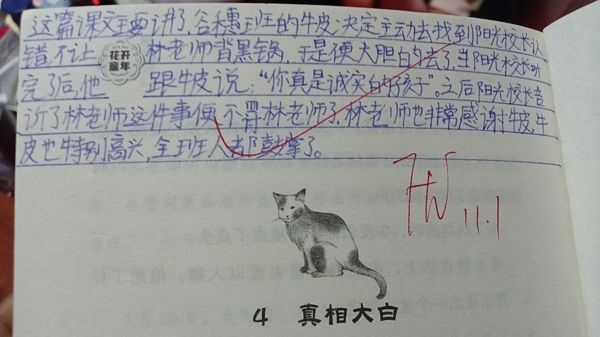 这篇课文主要讲了，谷穗班的牛皮，决定主动去找到阳光校长认
错不让 花开童年 林老师背黑锅，于是便大胆的去了，当阳光校长听
完了后，他 跟牛皮说：“你真是诚实的孩子”，之后阳光校长告
诉了林老师这件事便不骂林老师了，林老师也非常感谢牛皮，牛
皮也特别高兴，全班人都鼓掌了。
11.1
4 真相大白